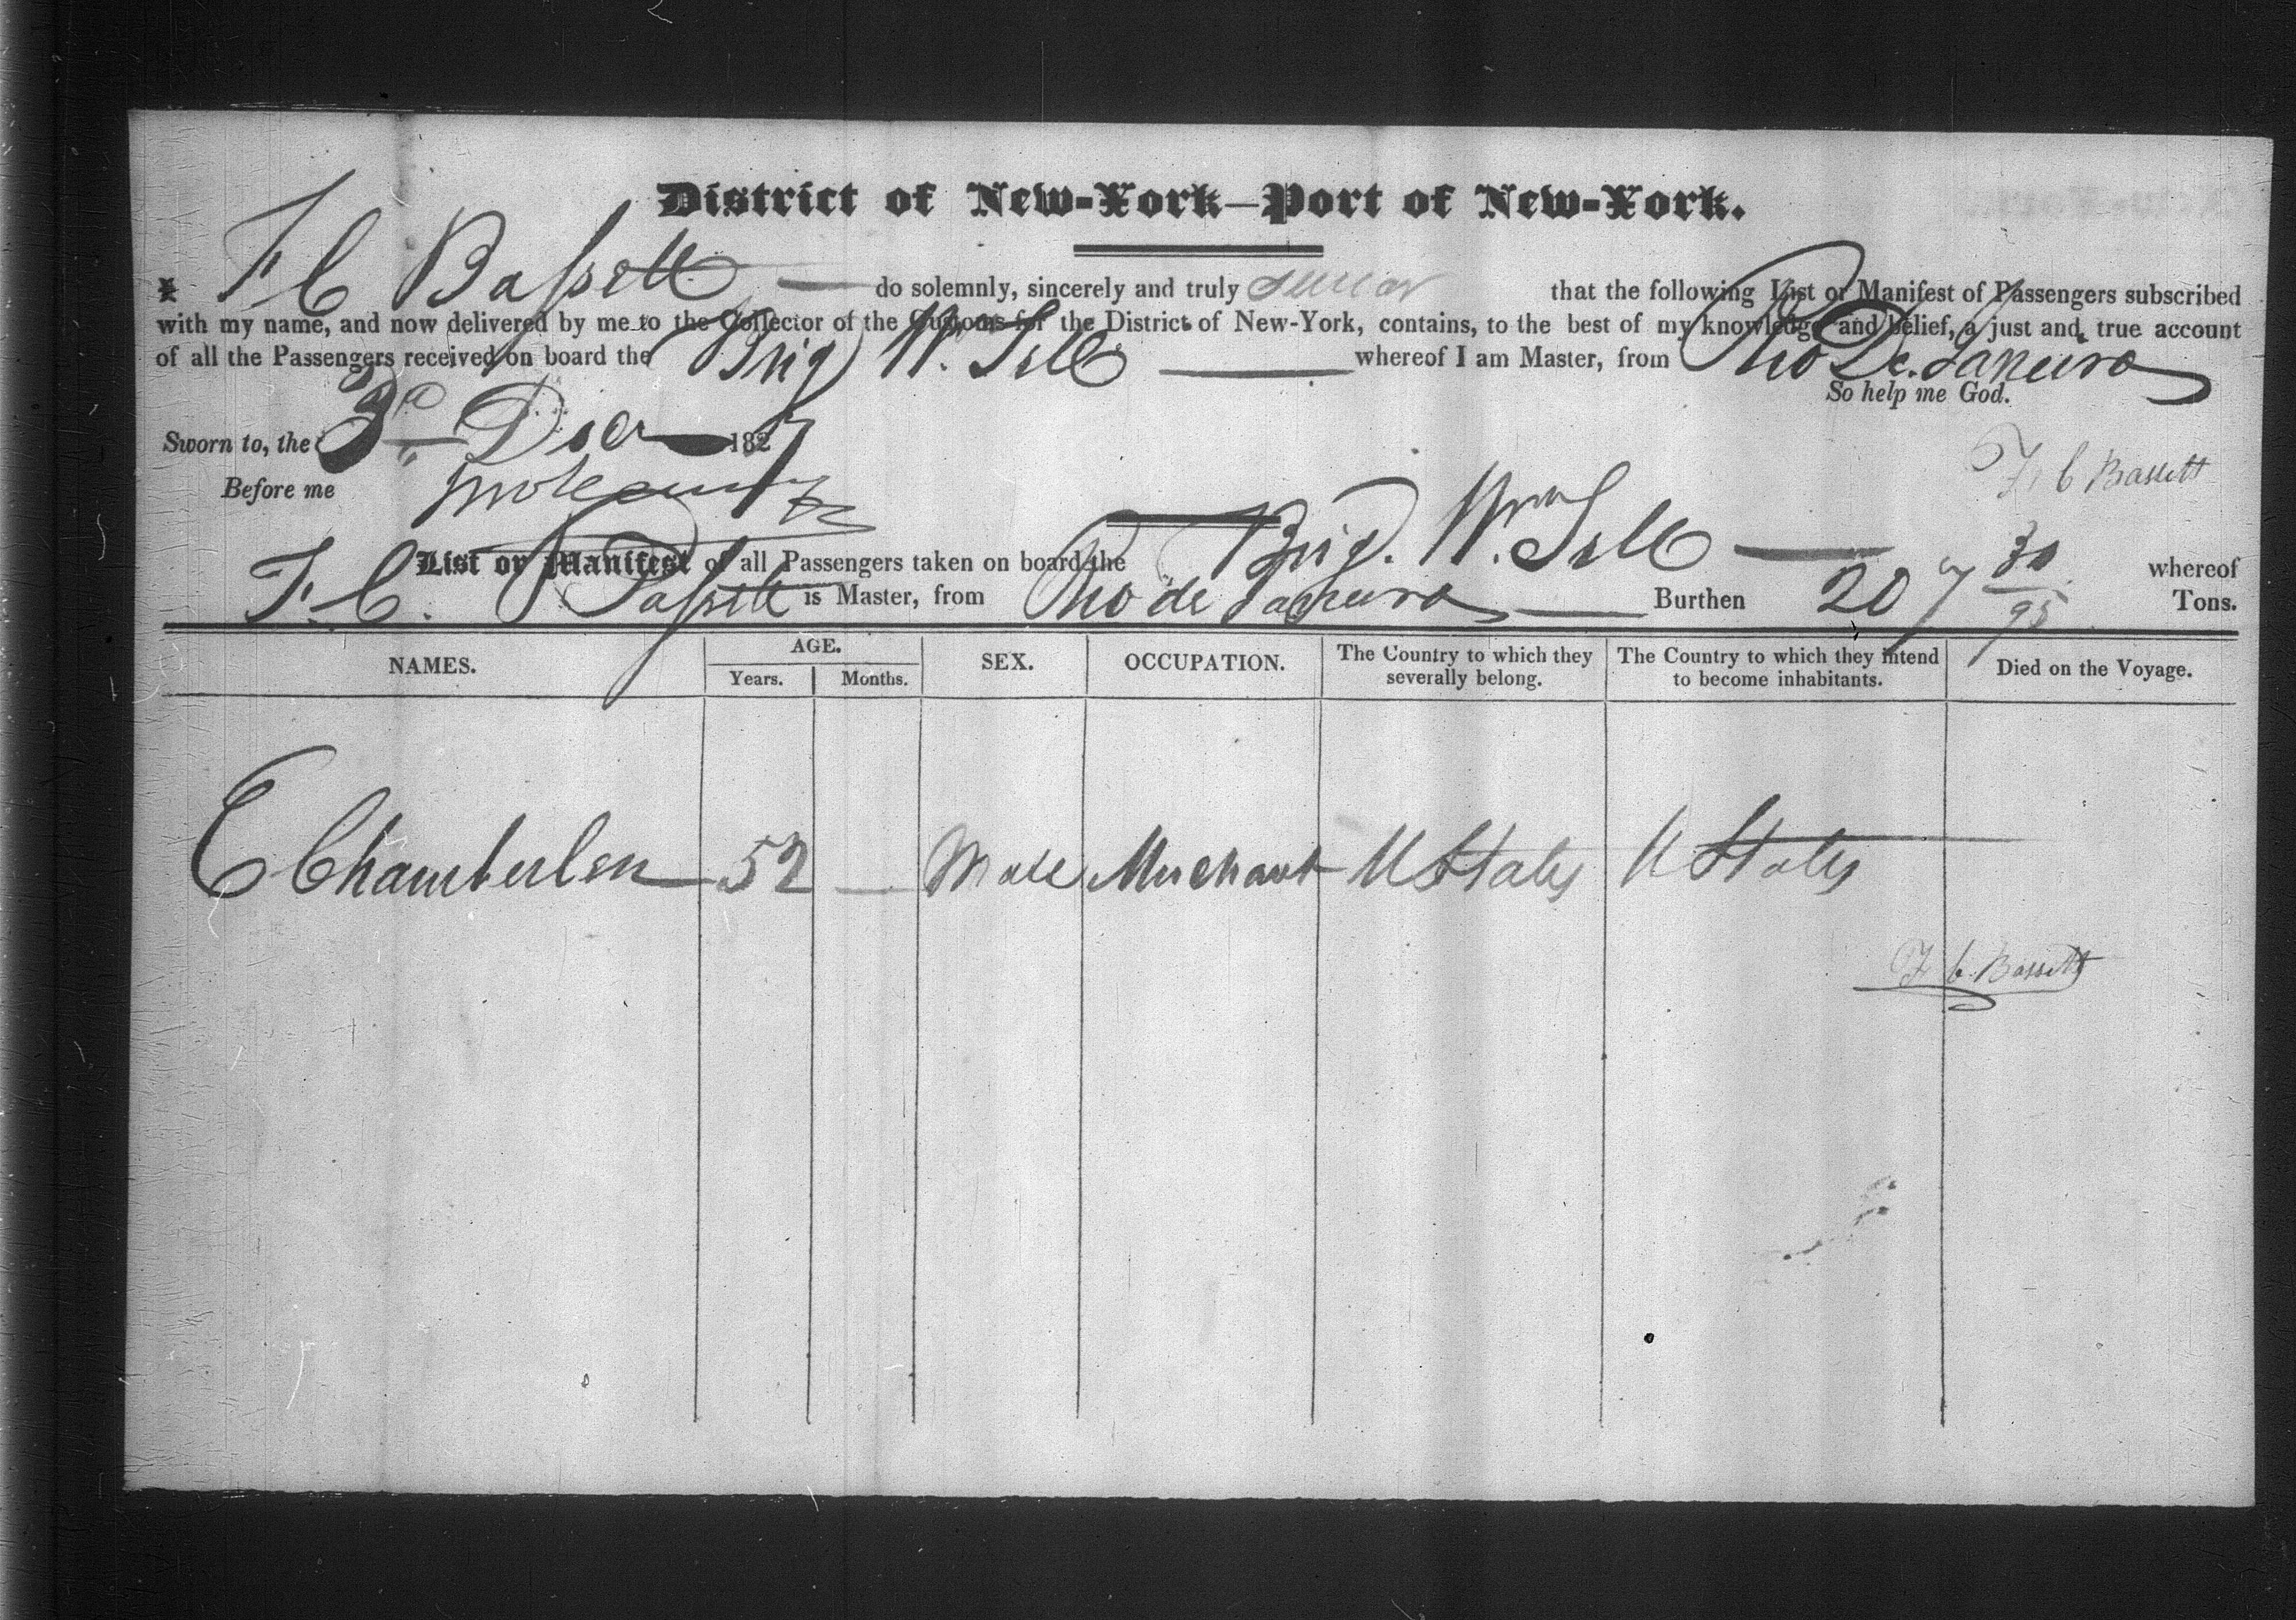 District of New-York—Port of New-York.
I F C Bassett do solemnly, sincerely and truly swear that the following List or Manifest of Passengers subscribed
with my name, and now delivered by me to the Collector of the Customs for the District of New-York, contains, to the best of my knowledge and belief, a just and true account
of all the Passengers received on board the Brig Wm Tell whereof I am Master, from Rio De Janeiro
So help me God.
Sworn to, the 3d Decr 1827
F C Bassett
Before me
List or Manifest of all Passengers taken on board the Brig. Wm Tell whereof
F. C. Bassett is Master, from Rio de Janeiro Burthen 207 30/95 Tons.
NAMES. AGE. Years. Months. SEX. OCCUPATION. The Country to which they severally belong. The Country to which they intend to become inhabitants. Died on the Voyage.
E Chamberlen 52 — Male Merchant U States U States
F C Bassett